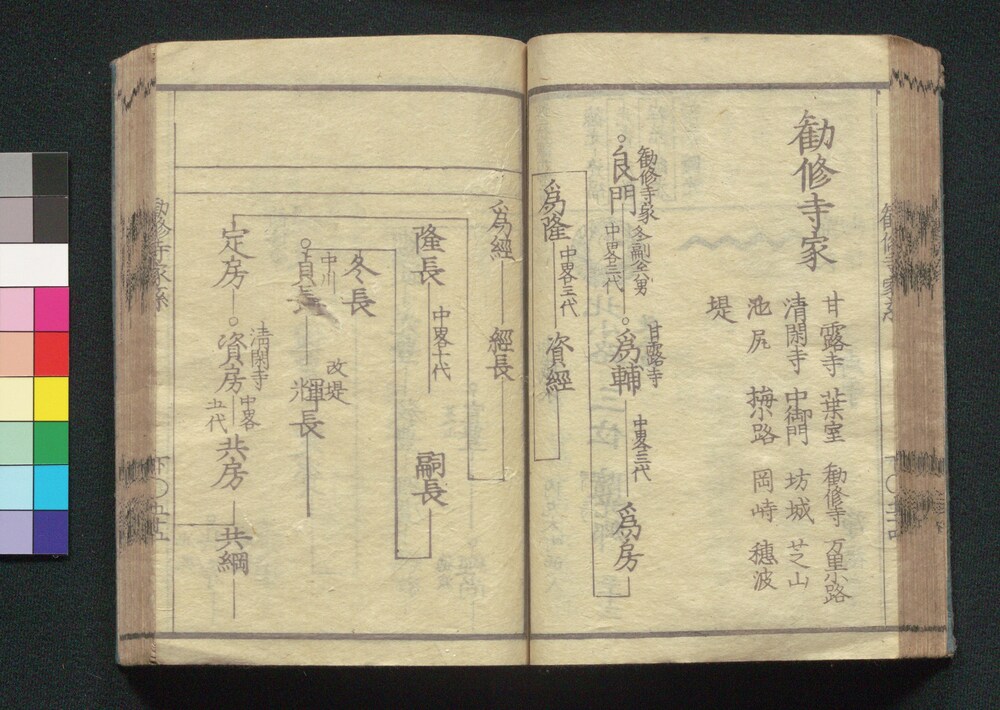 勧修寺家
甘露寺 葉室 勧修寺 万里小路
清閑寺 中御門 坊城 芝山
池尻 梅小路 岡崎 穂波
堤
勧修寺家 冬嗣公六男
良門
中畧三代
甘露寺
為輔
中畧三代
為房
為隆
中畧三代
資經
為經
經長
隆長
中畧十代
嗣長
冬長
中川
貞長
改堤
輝長
定房
清閑寺
資房
中畧
五代
共房
共綱
勧修寺家系